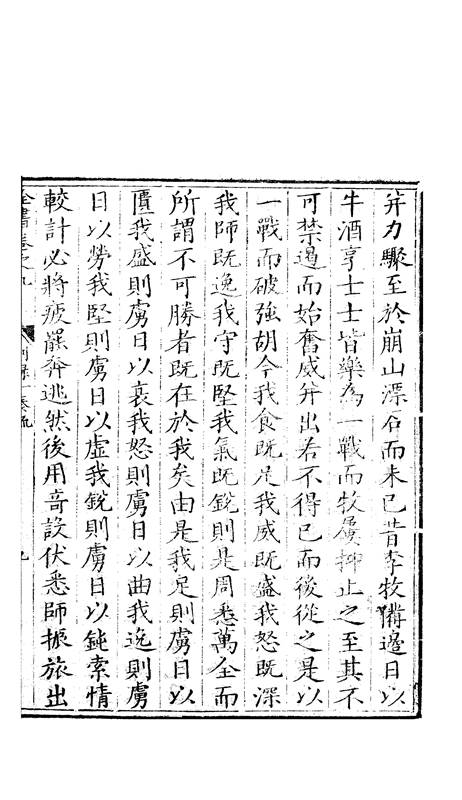 并力驟至於崩山漂石而未已昔李牧備邊日以
牛酒享士士皆樂為一戰而牧屢抑止之至其不
可禁遏而始奮威并出若不得已而後從之是以
一戰而破強胡今我食既足我威既盛我怒既深
我師既逸我守既堅我氣既銳則是周悉萬全而
所謂不可勝者既在於我矣由是我足則虜日以
匱我盛則虜日以衰我怒則虜日以曲我逸則虜
日以勞我堅則虜日以虛我銳則虜日以鈍索情
較計必將疲罷奔逃然後用奇設伏悉師振旅出
全書卷之九 別錄一奏疏 九